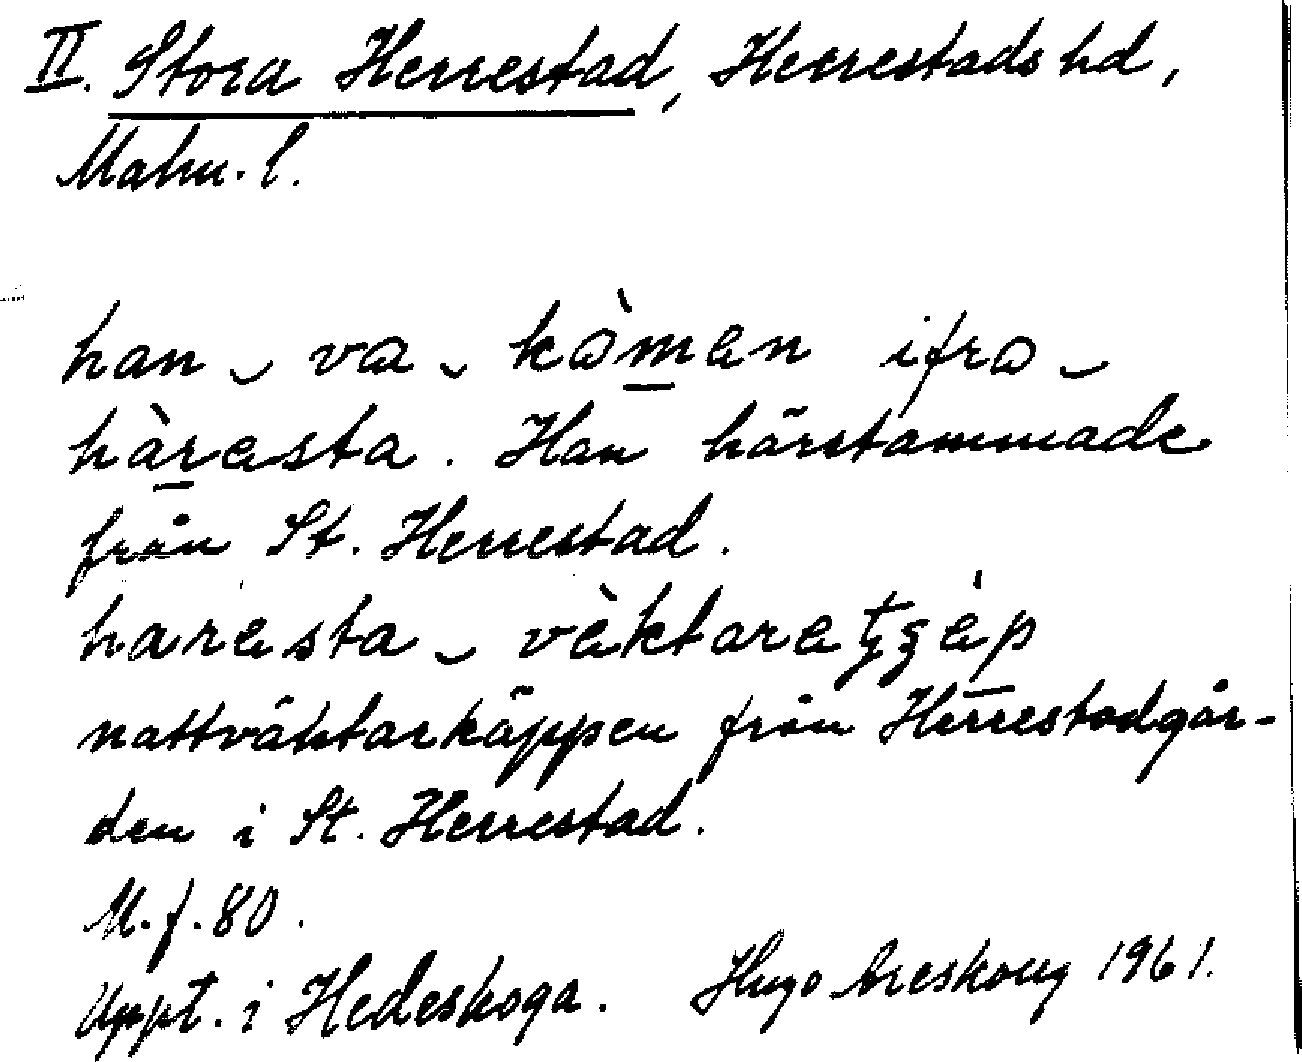 II. Stora Herrestad, Herrestads hd,
Malm. l.
han ‿ va ‿ kòmen ifra ‿
hàresta. Han härstammade
från St. Herrestad.
haresta ‿ vèktaretʒép
nattväktarkäppen från Herrestadgår-
den i St. Herrestad.
M. f. 80.
Uppt. i Hedeskoga. Hugo Areskoug 1961.